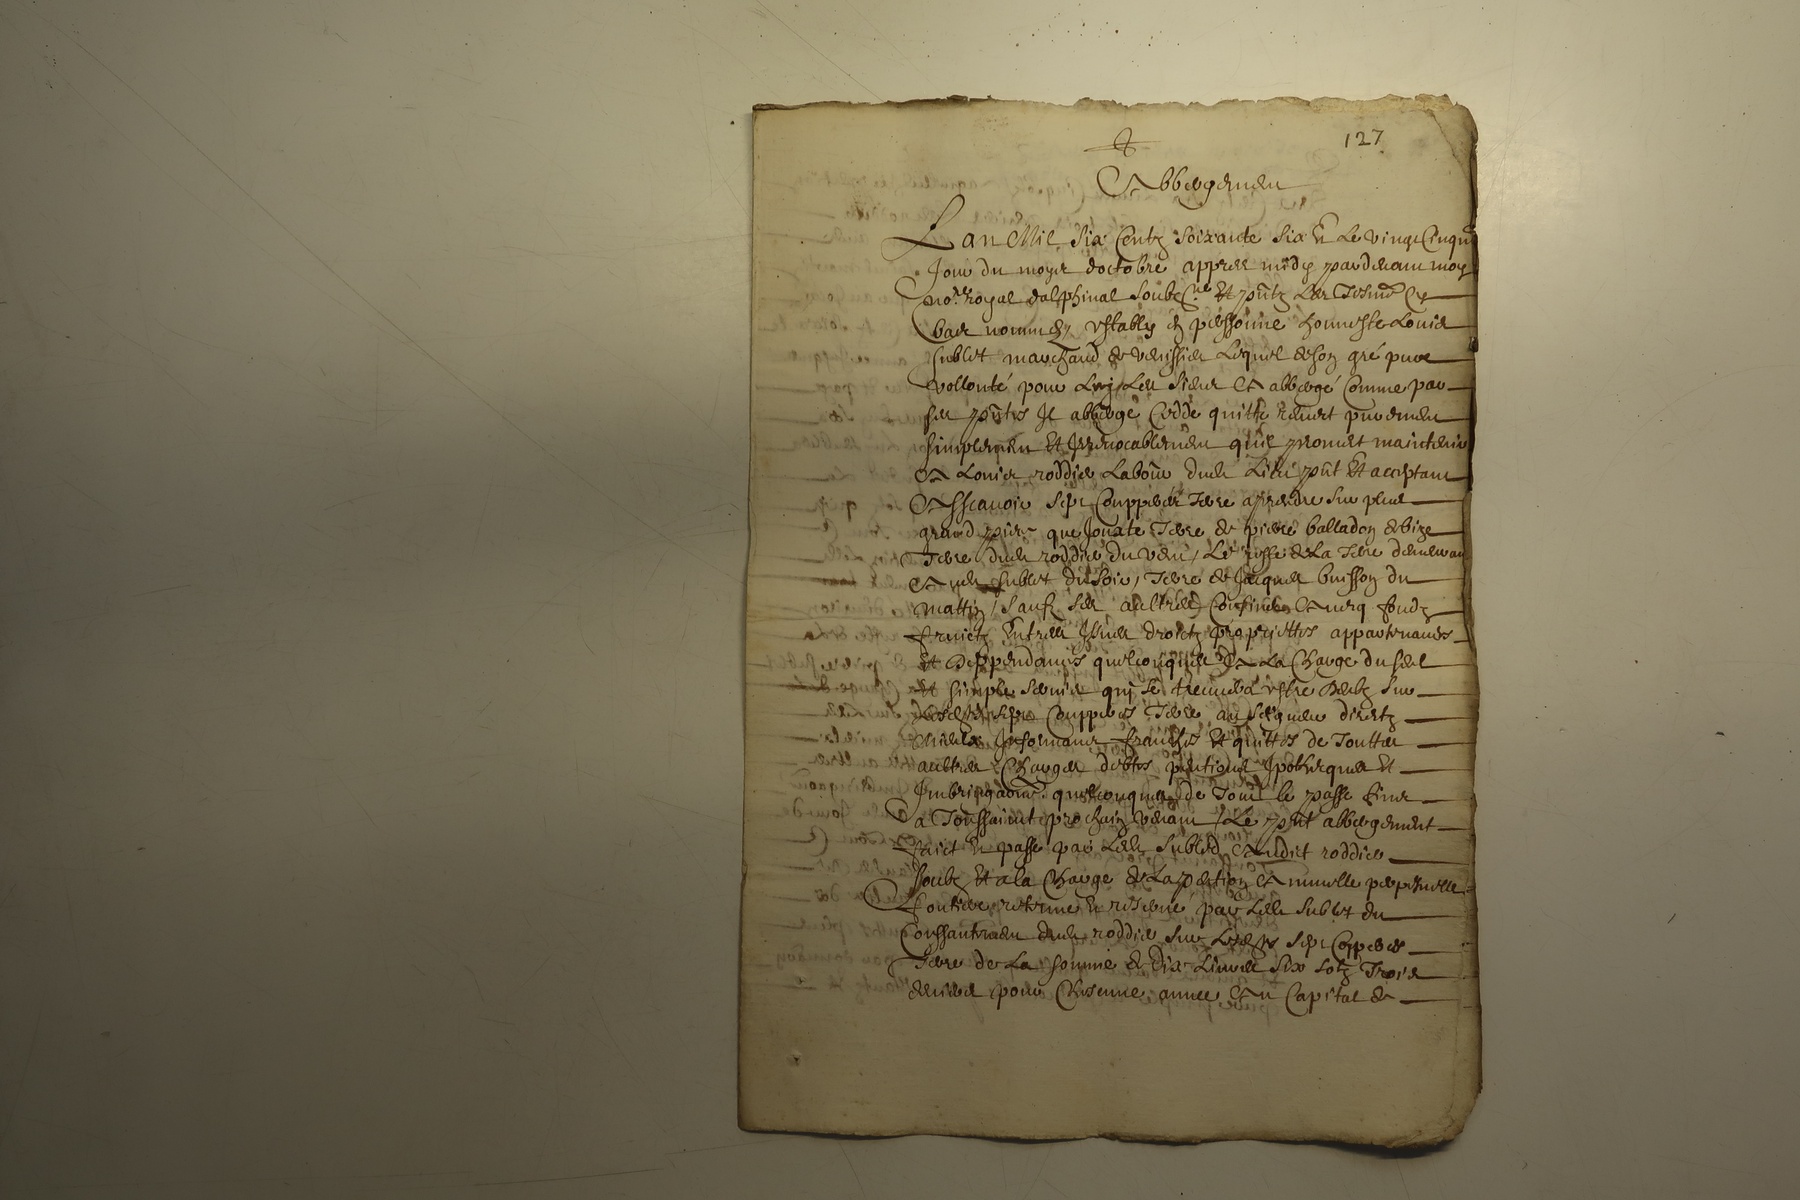 127
Abbergemen
Lan Mil Six Centz Soixante Six Et Le vingt Cinqu
Jour du moys doctobre appres midy pardevant moy
no.re royal dalphinal soubz.ne Et pntz Les Tesmo
bas nommez, estably en personne honneste Louis
Sublet marchand de lequel de son gré pure
vollonté pour Luy Les siens Et abbergé Comme par
ses pntes Il abberge Cedde quitte remet purement
simplement Et Irrevocablement quil promet maintenir
A Louis roddier Labour dudt Lieu pnt Et acceptant
Assçavoir sept Couppees Terre a prendre sur plus
grand que Jouxte Terre de pierre balladon de bize
Terre dudt roddier du vent, Le reste de La Terre demeurant
audt sublet du soir, Terre de Jacques buisson du
mattin, sauf ses aultres Confins Avecq fondz
fruictz Entrees Issues droictz propriettes appartenances
et deppendances quelconques A La Charge du
et simple servis qui se treuvera estre deubz sur
sept Couppees Terre au seigneur direct
franches Et quittes de Touttes
aultres Charges debtes pentions Ipotheques Et
quelconques de Tout le passe Jusques
a Toussaint prochain venant, Le pnt abbergement
faict Et passe par Ledt Sublet Audict roddier
soubz Et a la Charge de La pention Annuelle perpetuelle
fontiere retenue Et reservé par Ledt Sublet du
Conssantemen dudt roddier sur sept Coppees
Terre de La somme de Dix Livres Six solz Trois
deniers pour Chescune annee Au Capital de